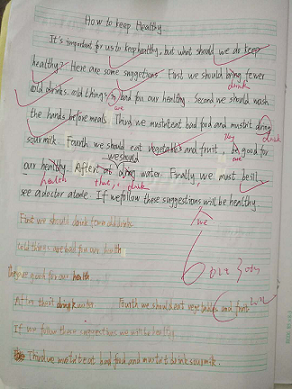 How to keep Healthy
It's important for us to keep healthy, but what should we do keep
healthy? Here are some suggestions. First we should bring fewer
drink
old drinks. old things is bad for our healthy. Second we should wash
are
the hands before meals. Third we mustn't eat bad food and mustn't dring
drink
they
sour milk. Fourth we should eat vegetables and fruit. good for
are
we should
our healthy. After dring water. Finally we must be ill
health that, drink
see a doctor at once. If we follow these suggestions will be healthy.
we
First we should drink fewer old drinks
Cold things are bad for our health
They are good for our health
After that drink water Fourth we should eat vegetables and fruit
If we follow these suggestions we will be healthy
Third we mustn't eat bad food and mustn't drink sour milk.